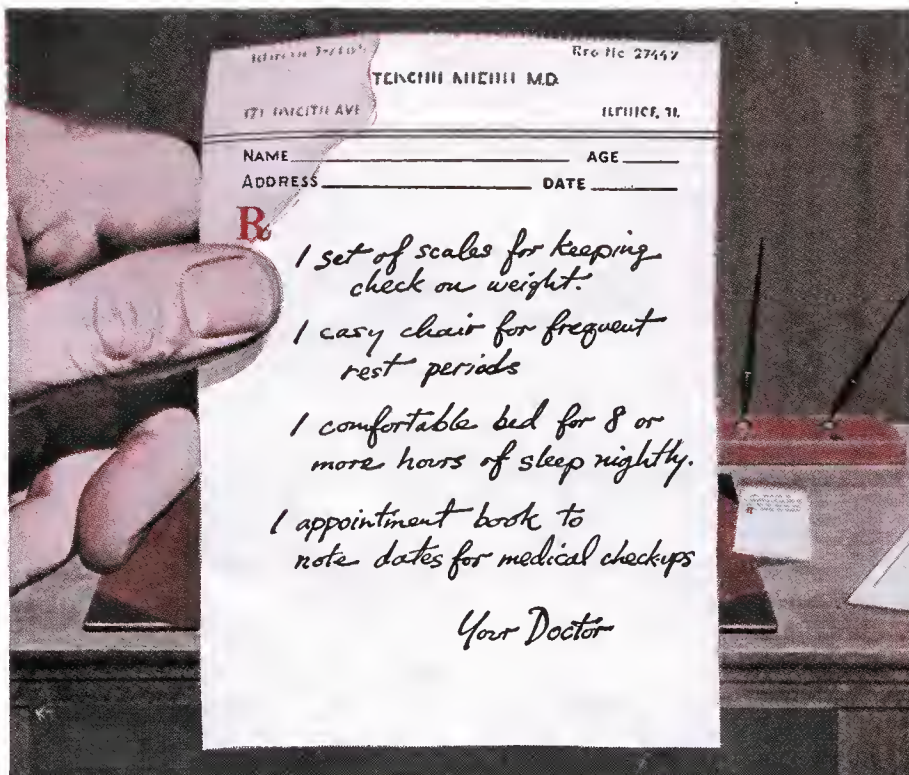 Reg No 27449
M.D.
AVE
NAME AGE
ADDRESS DATE
R
1 set of scales for keeping
check on weight.
1 easy chair for frequent
rest periods
1 comfortable bed for 8 or
more hours of sleep nightly.
1 appointment book to
note dates for medical checkups
Your Doctor